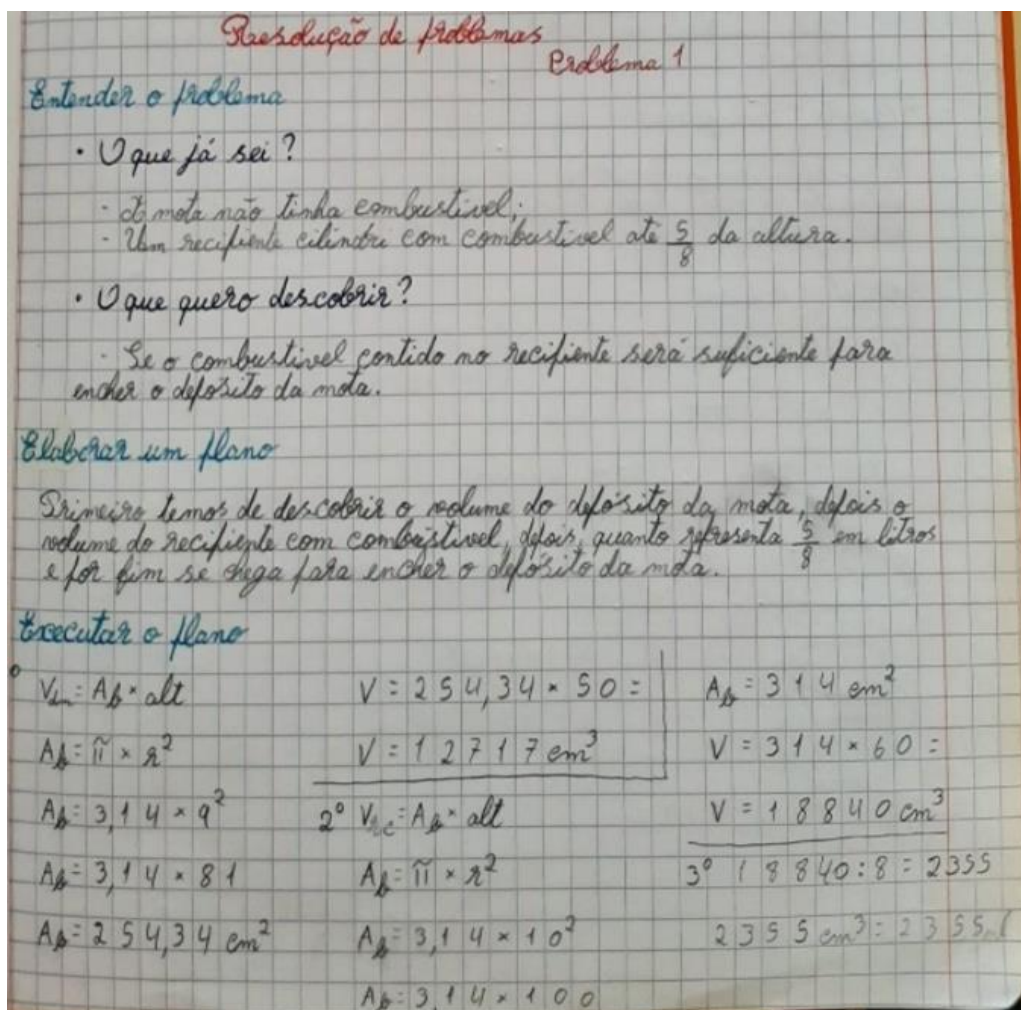 Resolução de problemas
Problema 1
Entender o problema
· O que já sei?
- A mota não tinha combustível;
- Um recipiente cilindri com combustível até 5/8 da altura.
· O que quero descobrir?
- Se o combustível contido no recipiente será suficiente para
encher o depósito da mota.
Elaborar um plano
Primeiro temos de descobrir o volume do depósito da mota, depois o
volume do recipiente com combustível, depois, quanto representa 5/8 em litros
e por fim se chega para encher o depósito da mota.
Executar o plano
= Ab × alt
Ab = π × r²
Ab = 3,14 × 9²
Ab = 3,14 × 81
Ab = 254,34 cm²
V = 254,34 × 50 =
V = 12717 cm³
2° = Ab × alt
Ab = π × r²
Ab = 3,14 × 10²
Ab = 3,14 × 100
Ab = 314 cm²
V = 314 × 60 =
V = 18840 cm³
3° 18840 : 8 = 2355
2355 cm³ = 2355 ml